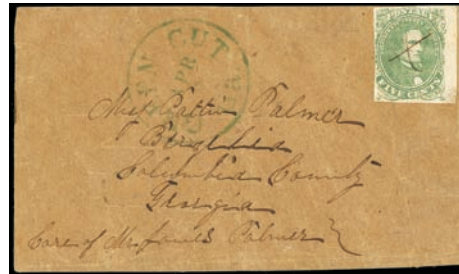 CUT
APR
FIVE CENTS
Miss Pattie Palmer
Berzelia
Columbia County
Georgia
Care of Mr. James Palmer